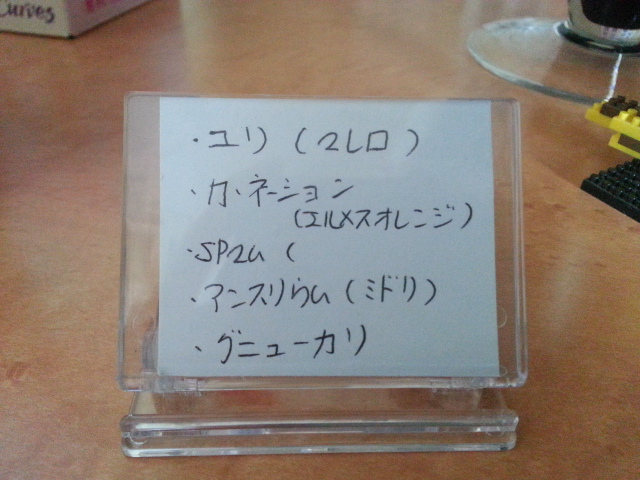 curves
・ユリ(2L口)
・カーネーション
(エルメスオレンジ)
・SP2u(
・アンスリウム(ミドリ)
・グニューカリ